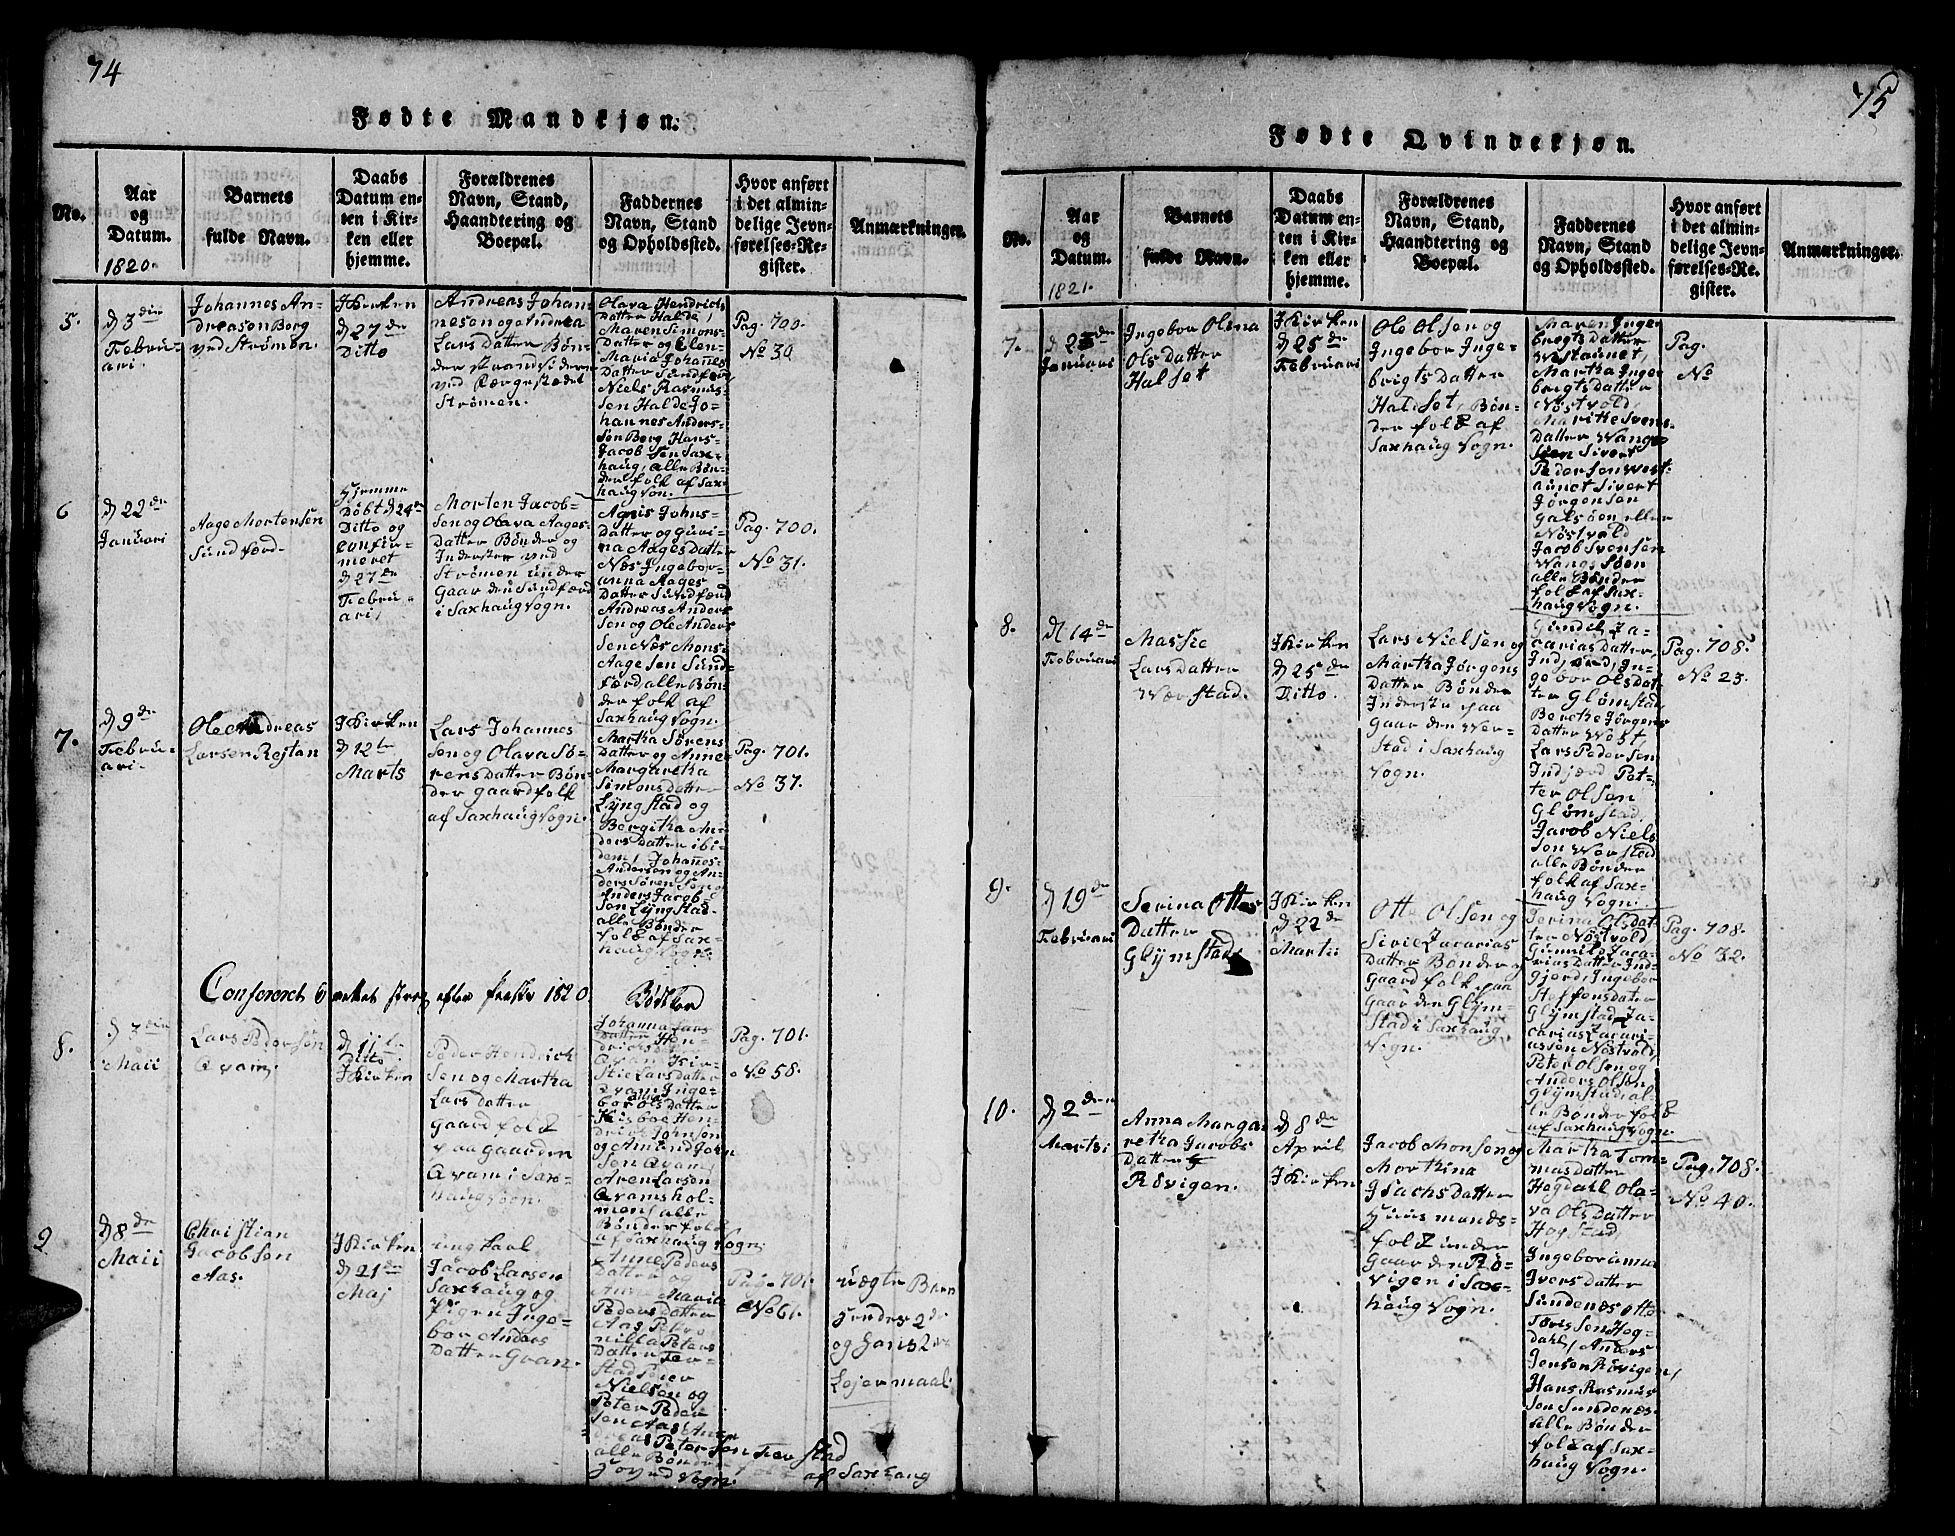 74
Fødte Mandkjøn.
No.
Aar
og
Datum.
1820.
Barnets
fulde Navn.
Daabs
Datum en-
ten i Kir-
ken eller
hjemme.
Forældrenes
Navn, Stand,
Haandtering og
Boepæl.
Faddernes
Navn, Stand
og Opholdssted.
Hvor anført
i det almin-
delige Jevn-
førelses-Re-
gister.
Anmærkninger.
5.
d 3die
Februari
ari.
Johannes An-
dreasen Borg
ved Strömen.
I Kirken
d 27de
Ditto
Andreas Johan-
nesen og Andrea
Lars Datter Bön-
der Strandsidern
ved Kergestædet
Strömen.
Olava Hendrichs
Datter Halde,
Maren Simons-
Datter og Elen-
Maria Johanes
Datter Sundfær
Niels Rasmus-
sen Halde Jo-
hannes Anders-
sen Borg Hans-
Jacobsen Sax-
haug, alle Bön-
derfolk af Sax-
haug Sogn.
Pag. 700.
No 30.
6
d 22de
Januari
Aage Mortensen
Sundford.
Hjemme
Döbt d 24de
Ditto og
confir-
meret
d 27de
Febru-
ari,
Morten Jacob-
sen og Olava Aages-
Datter Bönder og
Inderster ved
Strömen under
Gaarden Sundfærd
i Saxhaug Sogn.
Agnis Johns-
Datter og Guri-
na Aages Datter
Næs Ingebor-
anna Aages
Datter Sundfærd
Andreas Anders
sen og Ole Anders
sen Næs Mons-
Aagesen Sund-
færd alle Bön-
derfolk af
Saxhaug Sogn.
Pag. 700.
No 31.
7.
d 9de
Febru-
ari.
Ole Andreas
Larsen Rejtan
I Kirken
d 12te
Marts
Lars Johannes
sen og Olava Sö-
rens Datter Bön-
der Gaardfolk
af Saxhaug Sogn.
Martha Sörens
Datter og Anne-
Margaretha
Simons Datter
Lyngstad og
Bergitha An-
ders Datter ibi-
dem, Johanes-
Andersen og An-
ders Sörensen
Anders Jacob-
sen Lyngstad
alle Bönder
folk af Sax-
haug Sogn.
Pag. 701.
No 37.
8.
d 3die
Maii
Lars Pedersen
Qvam.
d 11te
Ditto
I Kirken
Peder Hendrick
sen og Martha
Lars Datter
Gaardfolk
paa Gaarden
Qvam i Sax-
haug Sogn.
Johanna Lars
Datter
Qvam Kir-
stie Lars Datter
Qvam Inge-
bor Ols Datter
Husboe Hen-
drich Johnsen
og Amund John
sen Qvam,
Aren Larsen
Qvamshol-
men, alle
Bönderfolk
af Saxhaug Sogn.
Pag. 701.
No 58.
9
d 8de
Maii
Christian
Jacobsen
Aas.
I Kirken
d 21de
Maj
Ungkarl
Jacob Larsen
Saxhaug og
Pigen Inge-
bor Anders
Datter Gran.
Anne Peders
Datter og
Maria
Peders Datter
Aas Petro-
nilla Peters
Datter Fer-
stad Peter
Nielsen og
Peter Peder
sen Aas An-
dreas Petersen Ferstad
alle Bönderfolk af Saxhaug
Sogn.
Pag. 701.
No 61.
Uægte Barn
Hendes 2de
og Hans 2de
Lejermaal.
75
Fødte Qvindekjøn.
No.
Aar
og
Datum.
1821.
Barnets
fulde Navn.
Daabs
Datum en-
ten i Kir-
ken eller
hjemme.
Forældrenes
Navn, Stand,
Haandtering og
Boepæl.
Faddernes
Navn, Stand
og Opholdssted.
Hvor anført
i det almin-
delige Jevn-
førelses-Re-
gister.
Anmærkninger.
7.
Januari
Ingebor Olina
Ols Datter
Halset
I Kirken
d 25de
Februari
Ole Olsen og
Ingebor Inge-
brigts Datter
Haldset, Bön-
derfolk af
Saxhaug Sogn.
Maren Inge-
brigts Datter
Westaunet,
Martha Inge-
brigts Datter
Nöstvold,
Marithe Svens-
Datter Wangs-
söen Sivert
Pedersen West-
aunet Sivert
Jörgensen
Galsöen eller
Nöstvold
Jacob Svensen
Wangssöen
alle Bönder
folk af Sax-
haug Sogn.
Pag.
No
8.
d 14de
Februari
Massie
Lars Datter
Wærstad.
I Kirken
d 25de
Ditto.
Lars Nielsen og
Martha Jörgens
Datter Bönder
Inderste paa
Gaarden Wer-
stad i Saxhaug
Sogn.
Gunild Za-
carias Datter,
Indjærd, In-
gebor Ols Dat-
ter Glömstad,
Berethe Jörgens
Datter Wöst
Lars Pedersen
Indjærd Pet-
ter Olsen
Glömstad,
Jacob Niels
sen Werstad
alle Bönder
folk af Sax-
haug Sogn.
Pag. 708.
No 23.
9.
d 19de
Februari
Serina Ottes
Datter
Glymstad
I Kirken
d 22de
Martii
Otte Olsen og
Sivie Zacarias
Datter Bönder
Gaardfolk paa
Gaarden Glym-
stad i Saxhaug
Sogn.
Serina Ols Dat-
ter Nöstvold
Gunnild Zaca-
rias Datter Ind-
gjerd, Ingebor
Steffens Dater
Glymstad Za-
carias Zacari-
assen Nöstvold,
Peter Olsen og
Anders Olsen
Glymstad al-
le Bönderfolk
af Saxhaug Sogn.
Pag. 708.
No 32.
10.
d 2den
Martsi
Anna Marga-
retha Jacobs
Datter
Rövigen.
d 8de
April
I Kirken
Jacob Monsen og
Marthina
Isachs Datter
Huusmands-
folk under
Gaarden Rö-
vigen i Sax-
haug Sogn.
Martha Tom-
mas Datter
Hogdall Ola-
va Ols Datter
Hogstad,
Ingeborianna
Ivers Datter
Sundenæs Otte
Torissen Hog-
dahl, Anders
Jensen Rövigen,
Hans Rasmus
sen Sundenæs-
alle Bönder
folk af Sax-
haug Sogn.
Pag. 708.
No 40.